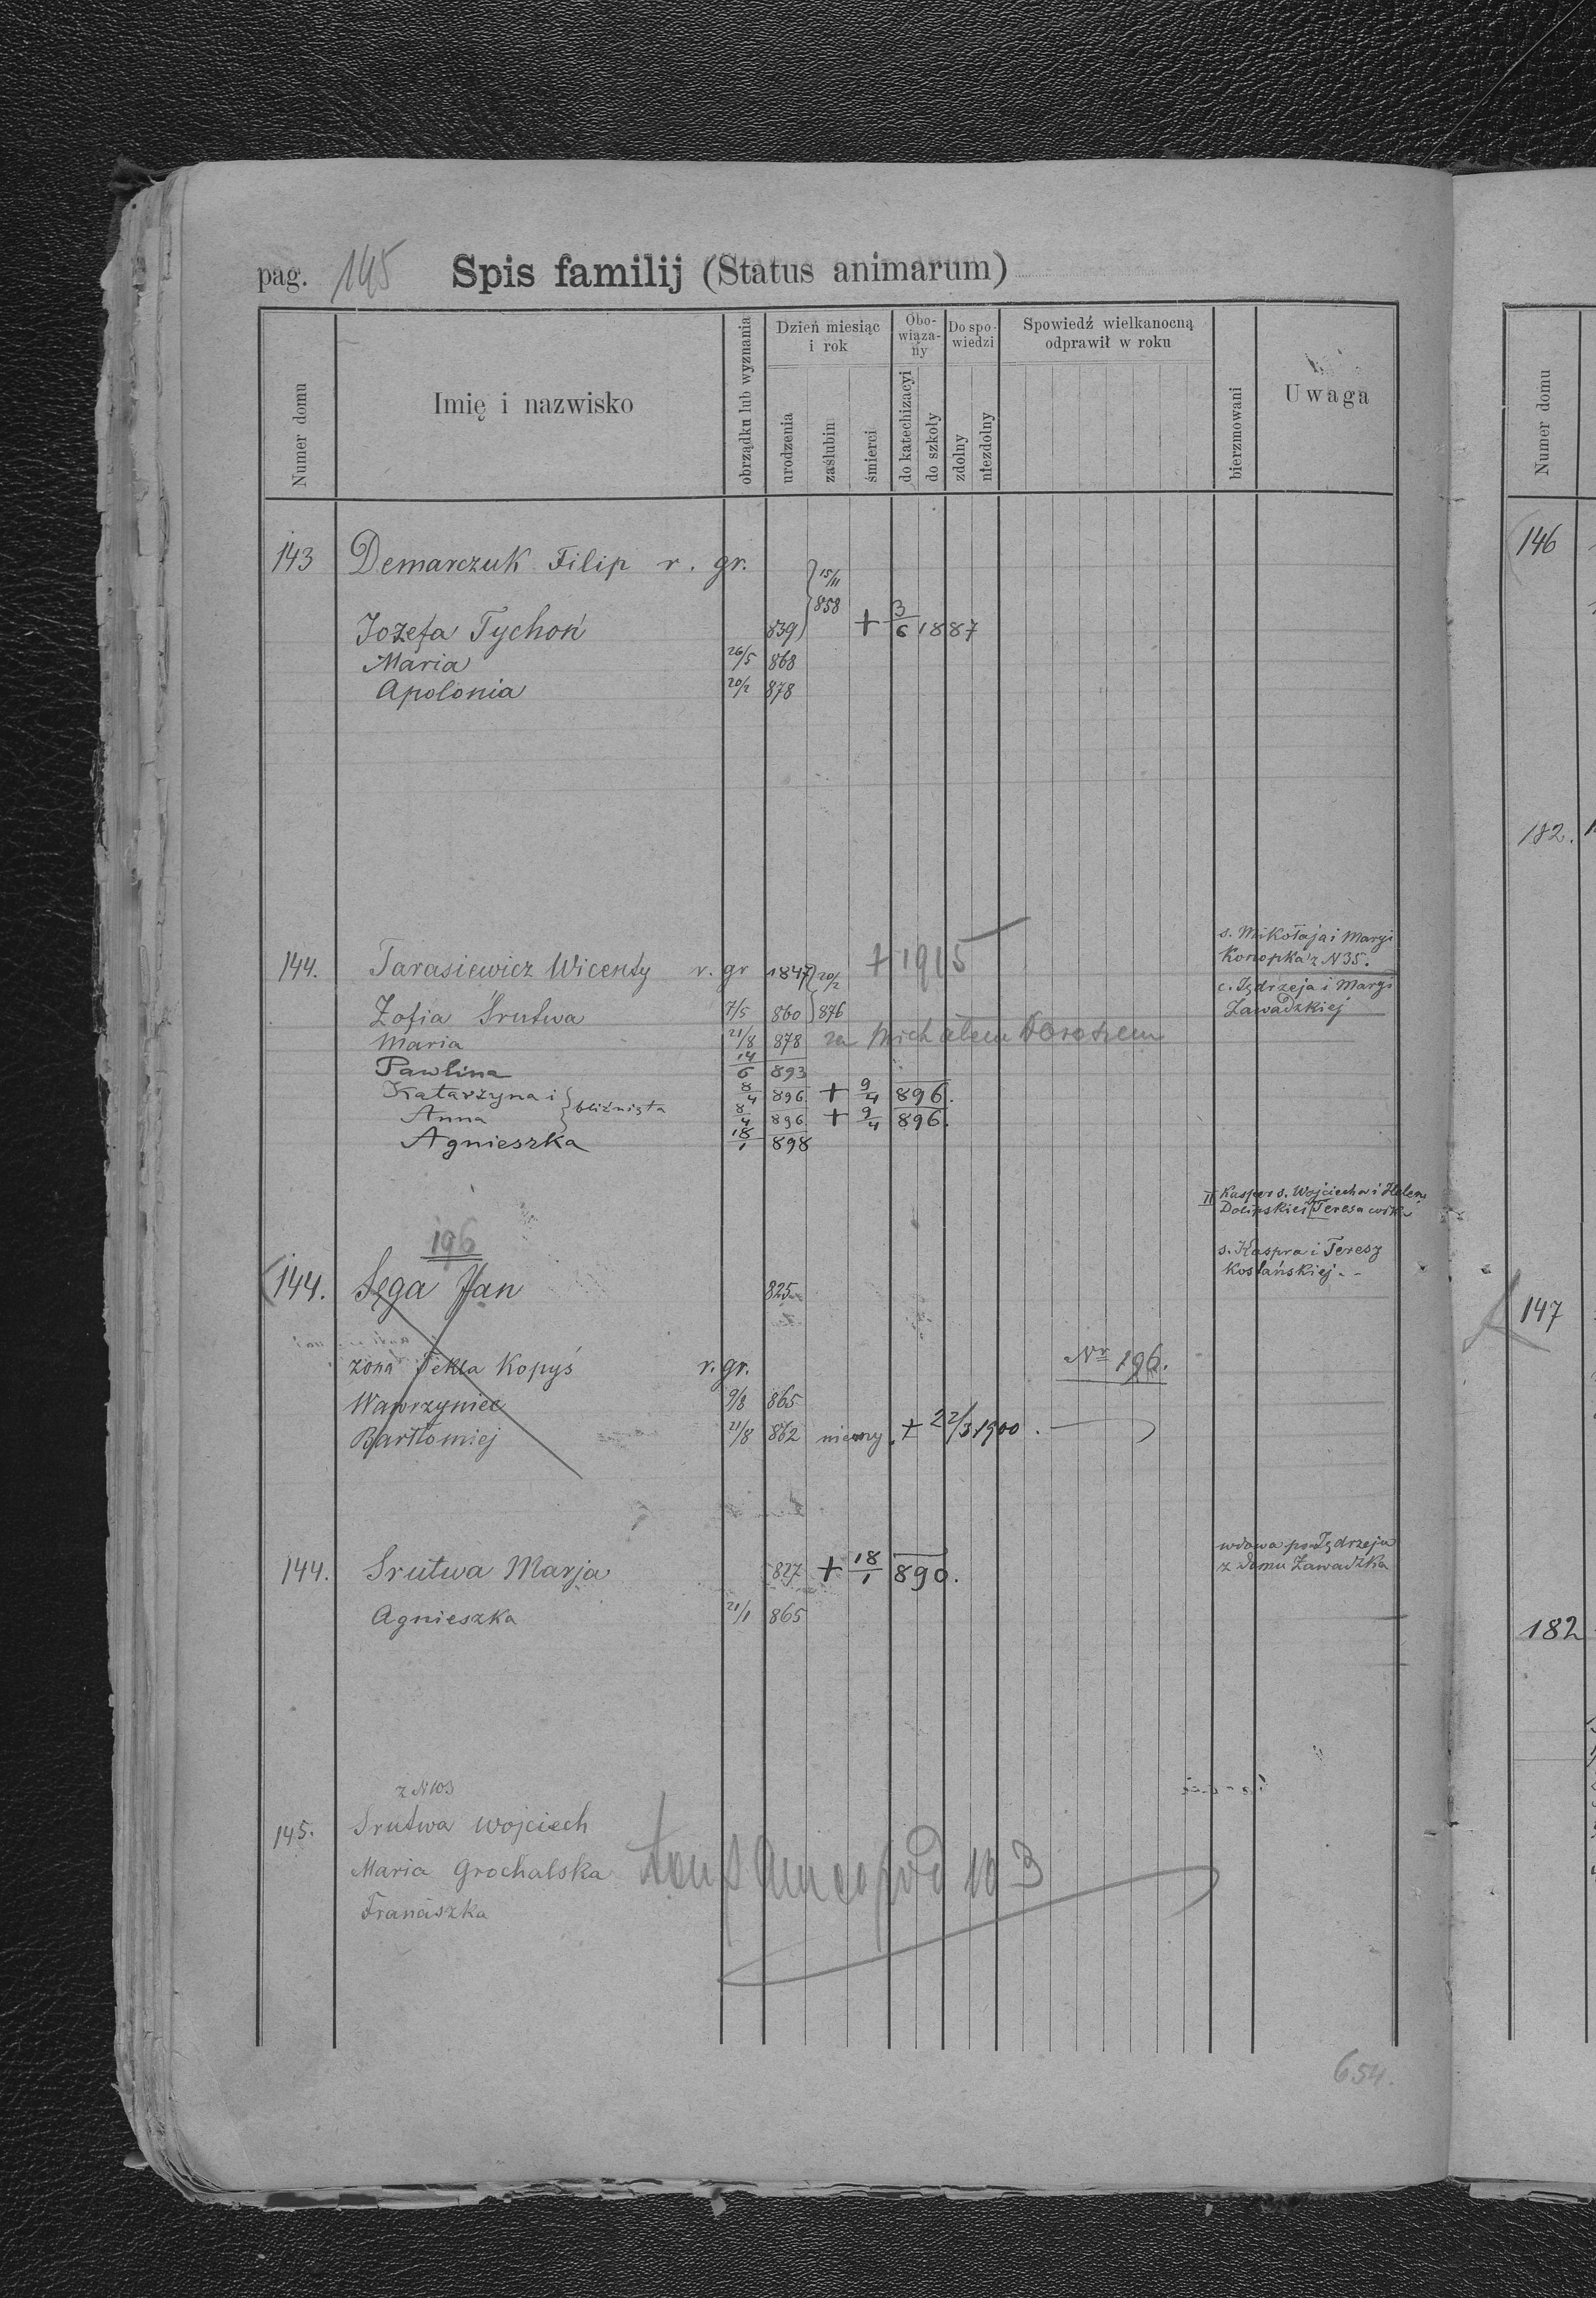 pag. 145 Spis familij (Status animarum)
Numer domu
Imię i nazwisko
obrządku lub wyznania
Dzień miesiąc i rok
urodzenia
zaślubin
śmierci
Obowiązany
do katechizacyi
do szkoły
Do spowiedzi
zdolny
niezdolny
Spowiedź wielkanocną odprawił w roku
bierzmowani
Uwaga
143 Demarczuk Filip r. gr. 15/11
858
Jozefa Tychoń 839 + 3/6 1887
Maria 26/5 868
Apolonia 20/2 878
s. Mikołaja i Maryi
Konopka z N 35.
144. Tarasiewicz Wicenty r. gr 1847 20/2 + 1915
c. Jędrzeja i Maryi
Zawadzkiej
Zofia Srutwa 7/5 860 876
Maria 21/8 878 za Michałem
Pawlina 14/6 893
Katarzyna i 8/4 896 + 9/4 896.
bliźnięta
Anna 8/4 896 + 9/4 896.
Agnieszka 18/1 898
II Kasper s. Wojciecha i Heleny
Dolipskiej Teresa
196
s. Kaspra i Teresy
Kosłańskiej. -
144. Sęga Jan 825
żona Tekla Kopyś r. gr. Nr 196.
Wawrzyniec 9/8 865
Bartłomiej 21/8 862 niemy. + 22/3 1900.
wdowa po Jędrzeju
z domu Zawadzka
144. Srutwa Marja 827 + 18/1 890.
Agnieszka 21/1 865
z N 103
145. Srutwa Wojciech
Maria Grochalska pod 103
Franciszka
654.
Numer domu
146
182.
147
182